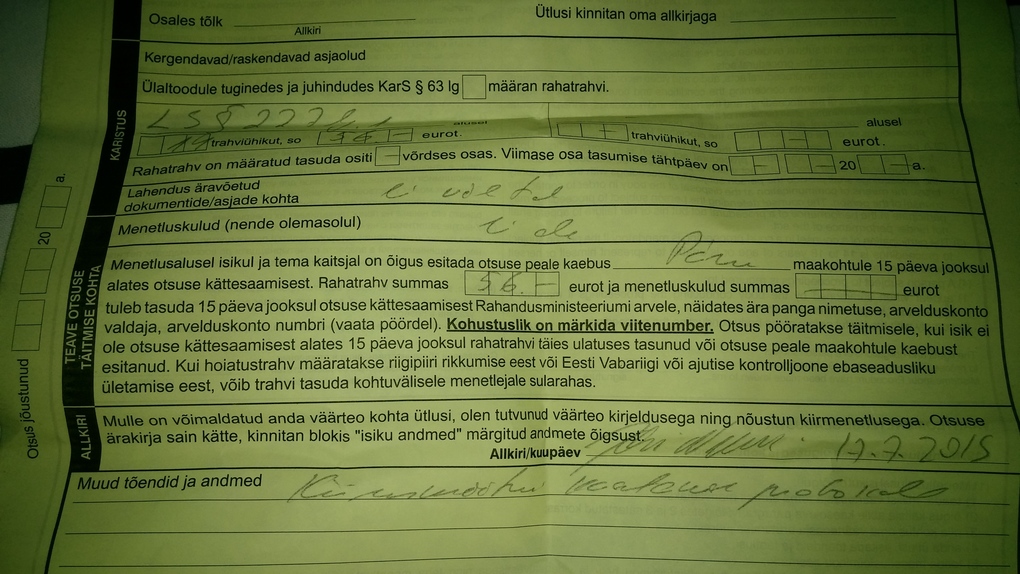 Osales tõlk
Allkiri
Ütlusi kinnitan oma allkirjaga
KARISTUS
Kergendavad/raskendavad asjaolud
Ülaltoodule tuginedes ja juhindudes KarS § 63 lg määran rahatrahvi.
LS § 227 alusel
alusel
trahviühikut, so eurot.
trahviühikut, so eurot.
Rahatrahv on määratud tasuda ositi võrdses osas. Viimase osa tasumise tähtpäev on 20 a.
Lahendus äravõetud
dokumentide/asjade kohta
Menetluskulud (nende olemasolul)
TEAVE OTSUSE
TÄITMISE KOHTA
Menetlusalusel isikul ja tema kaitsjal on õigus esitada otsuse peale kaebus maakohtule 15 päeva jooksul
alates otsuse kättesaamisest. Rahatrahv summas 56.- eurot ja menetluskulud summas eurot
tuleb tasuda 15 päeva jooksul otsuse kättesaamisest Rahandusministeeriumi arvele, näidates ära panga nimetuse, arvelduskonto
valdaja, arvelduskonto numbri (vaata pöördel). Kohustuslik on märkida viitenumber. Otsus pööratakse täitmisele, kui isik ei
ole otsuse kättesaamisest alates 15 päeva jooksul rahatrahvi täies ulatuses tasunud või otsuse peale maakohtule kaebust
esitanud. Kui hoiatustrahv määratakse riigipiiri rikkumise eest või Eesti Vabariigi või ajutise kontrolljoone ebaseadusliku
ületamise eest, võib trahvi tasuda kohtuvälisele menetlejale sularahas.
ALLKIRI
Mulle on võimaldatud anda väärteo kohta ütlusi, olen tutvunud väärteo kirjeldusega ning nõustun kiirmenetlusega. Otsuse
ärakirja sain kätte, kinnitan blokis "isiku andmed" märgitud andmete õigsust.
Allkiri/kuupäev 17.7.2015
Muud tõendid ja andmed
Otsus jõustunud 20 a.